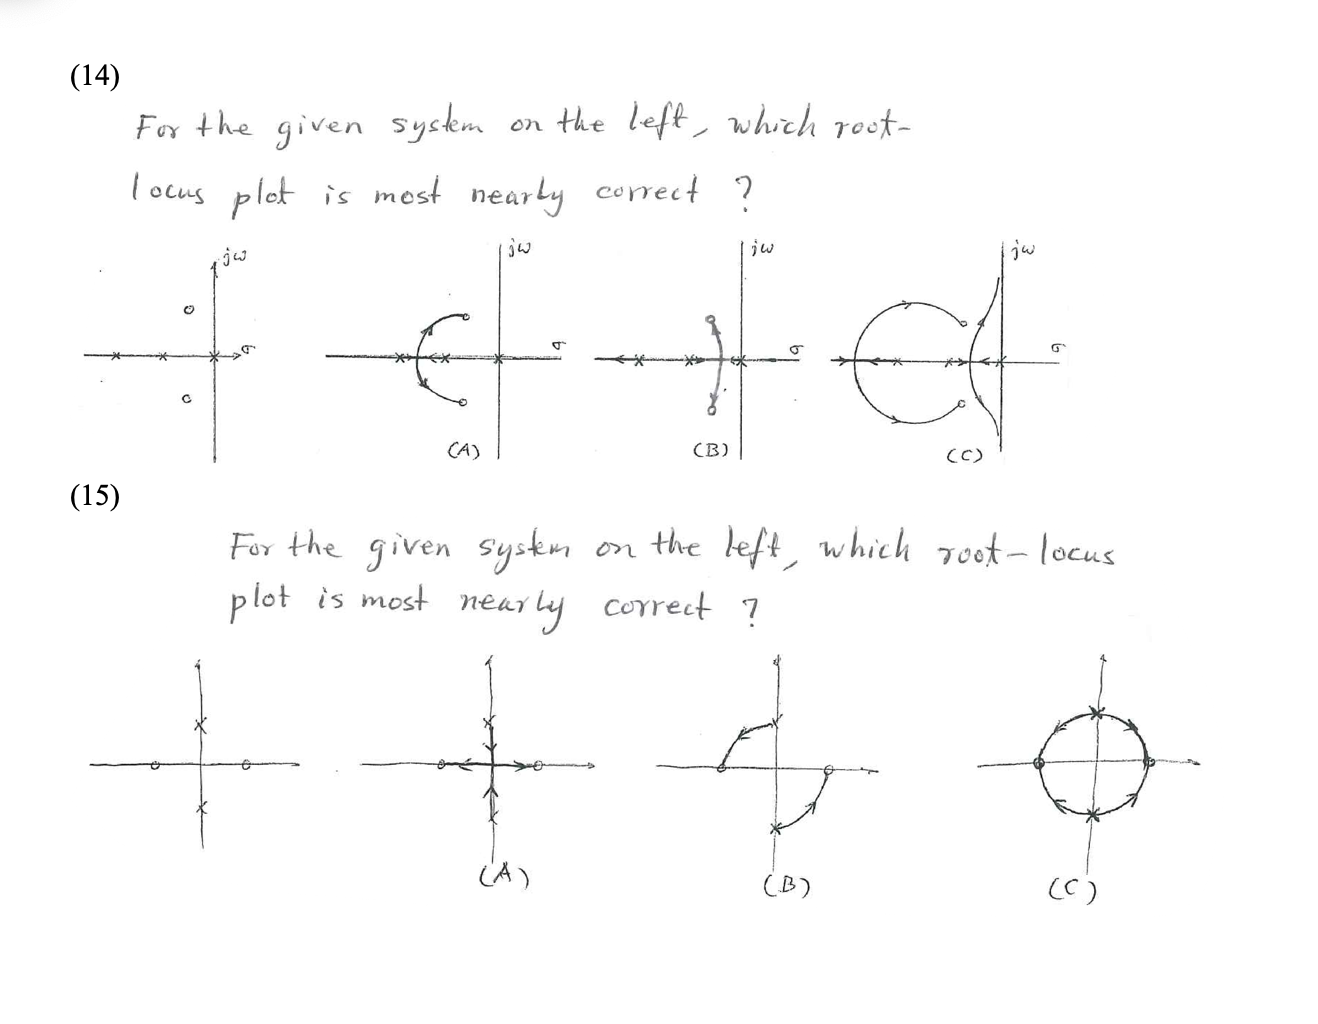 (14)
For the given system on the left, which root-
locus plot is most nearly correct ?
jω jω jω jω
σ σ σ σ
(A) (B) (C)
(15)
For the given system on the left, which root-locus
plot is most nearly correct ?
(A) (B) (C)